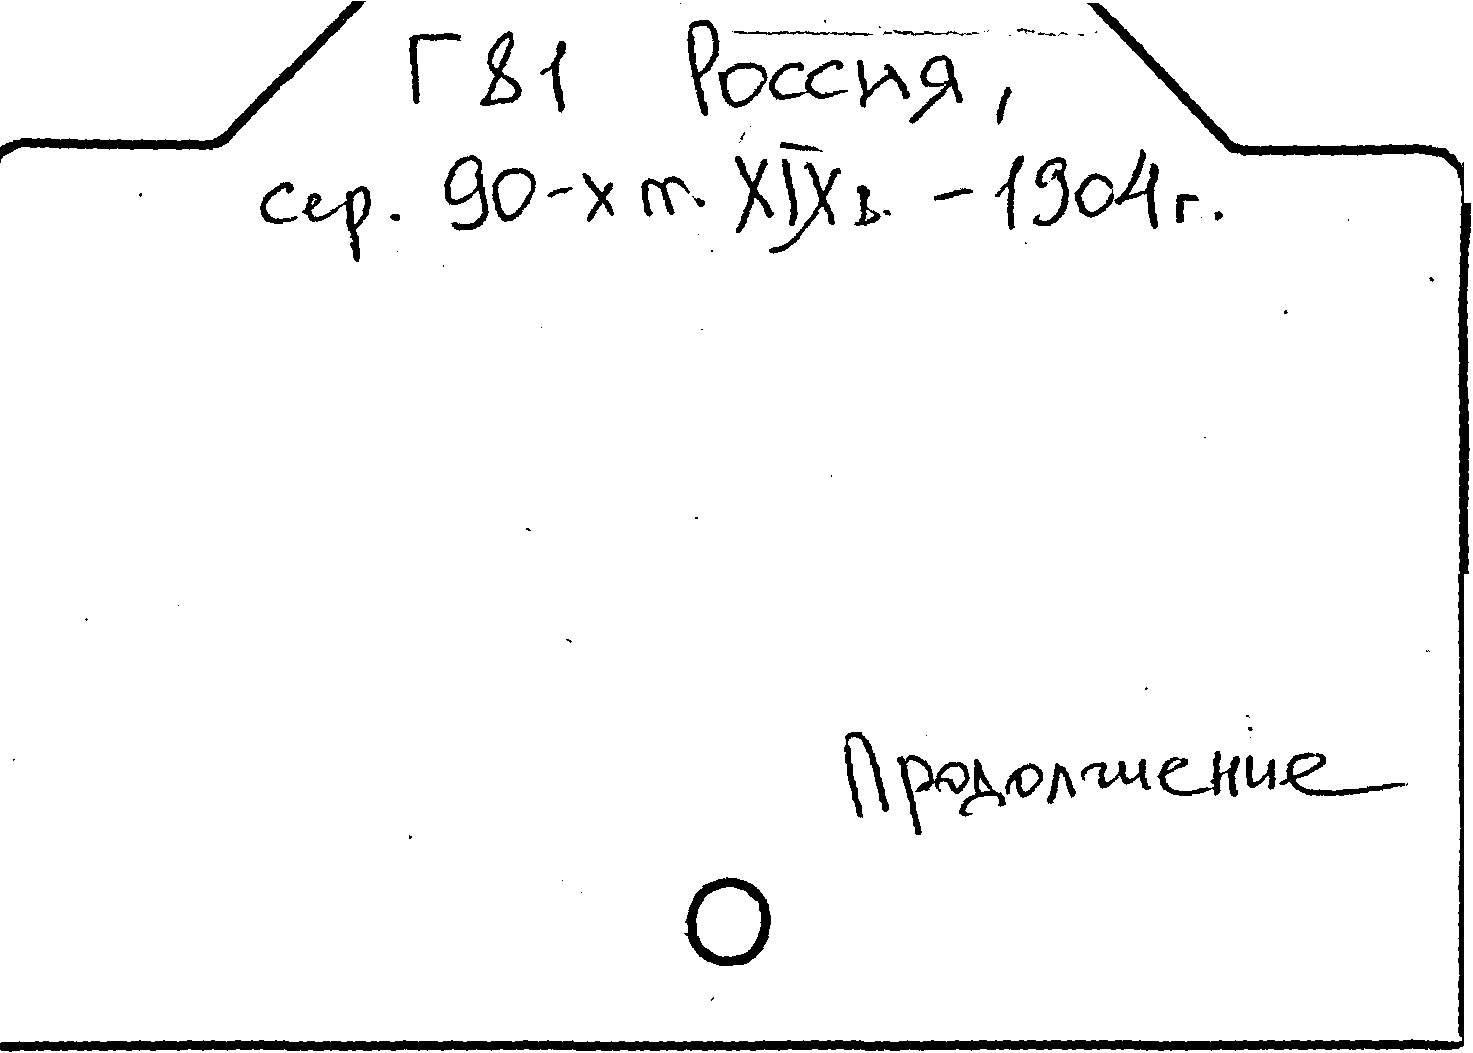 Г81 Россия,
сер. 90-х гг. XIX в. - 1904 г.
Продолжение